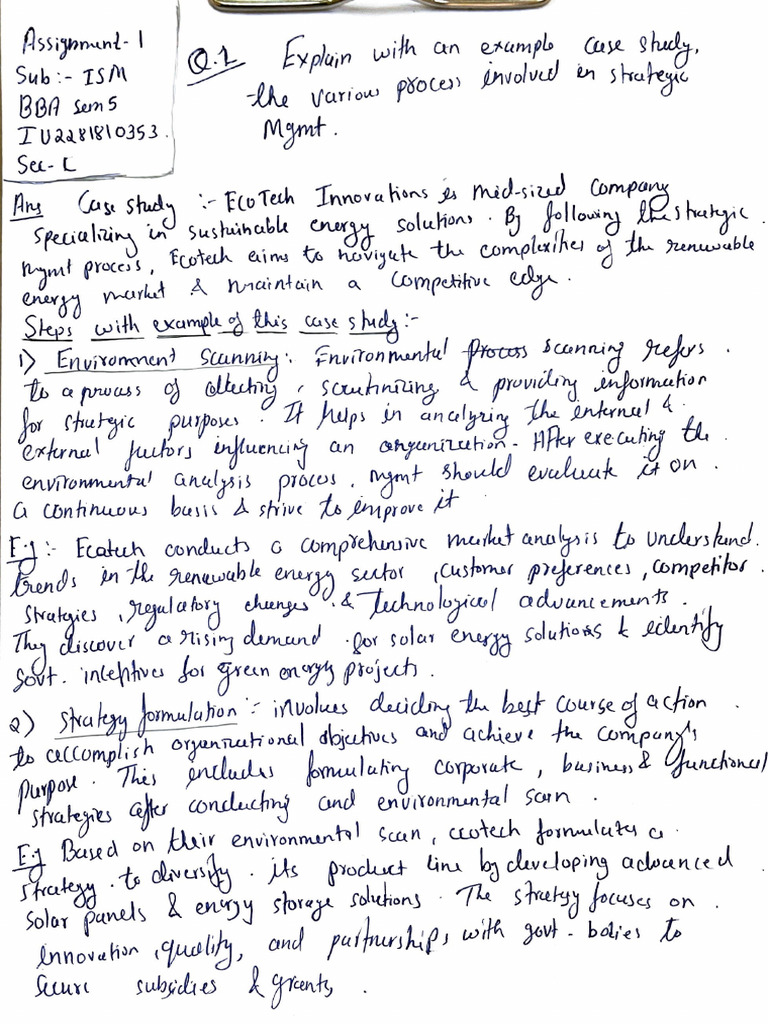 Assignment-1
Sub:- ISM
BBA sem 5
IU2281810353.
Sec- C
Q.1 Explain with an example case study,
the various process involved in strategic
Mgmt.
Ans Case study :- EcoTech Innovations is mid-sized company
specializing in sustainable energy solutions. By following the strategic
mgmt process, Ecotech aims to navigate the complexities of the renewable
energy market & maintain a competitive edge.
Steps with example of this case study:-
1) Environment Scanning: Environmental process scanning refers
to a process of collecting, scrutinizing & providing information
for strategic purposes. It helps in analyzing the internal &
external factors influencing an organization. After executing the
environmental analysis process, mgmt should evaluate it on
a continuous basis & strive to improve it
E.g:- Ecotech conducts a comprehensive market analysis to understand
trends in the renewable energy sector, customer preferences, competitor
strategies, regulatory changes & technological advancements.
They discover a rising demand for solar energy solutions & identify
Govt. incentives for green energy projects.
2) Strategy formulation:- involves deciding the best course of action
to accomplish organizational objectives and achieve the company's
purpose. This includes formulating corporate, business & functional
strategies after conducting and environmental scan.
E.g Based on their environmental scan, ecotech formulates a
strategy to diversify its product line by developing advanced
solar panels & energy storage solutions. The strategy focuses on
innovation, quality, and partnerships with govt. bodies to
secure subsidies & grants.